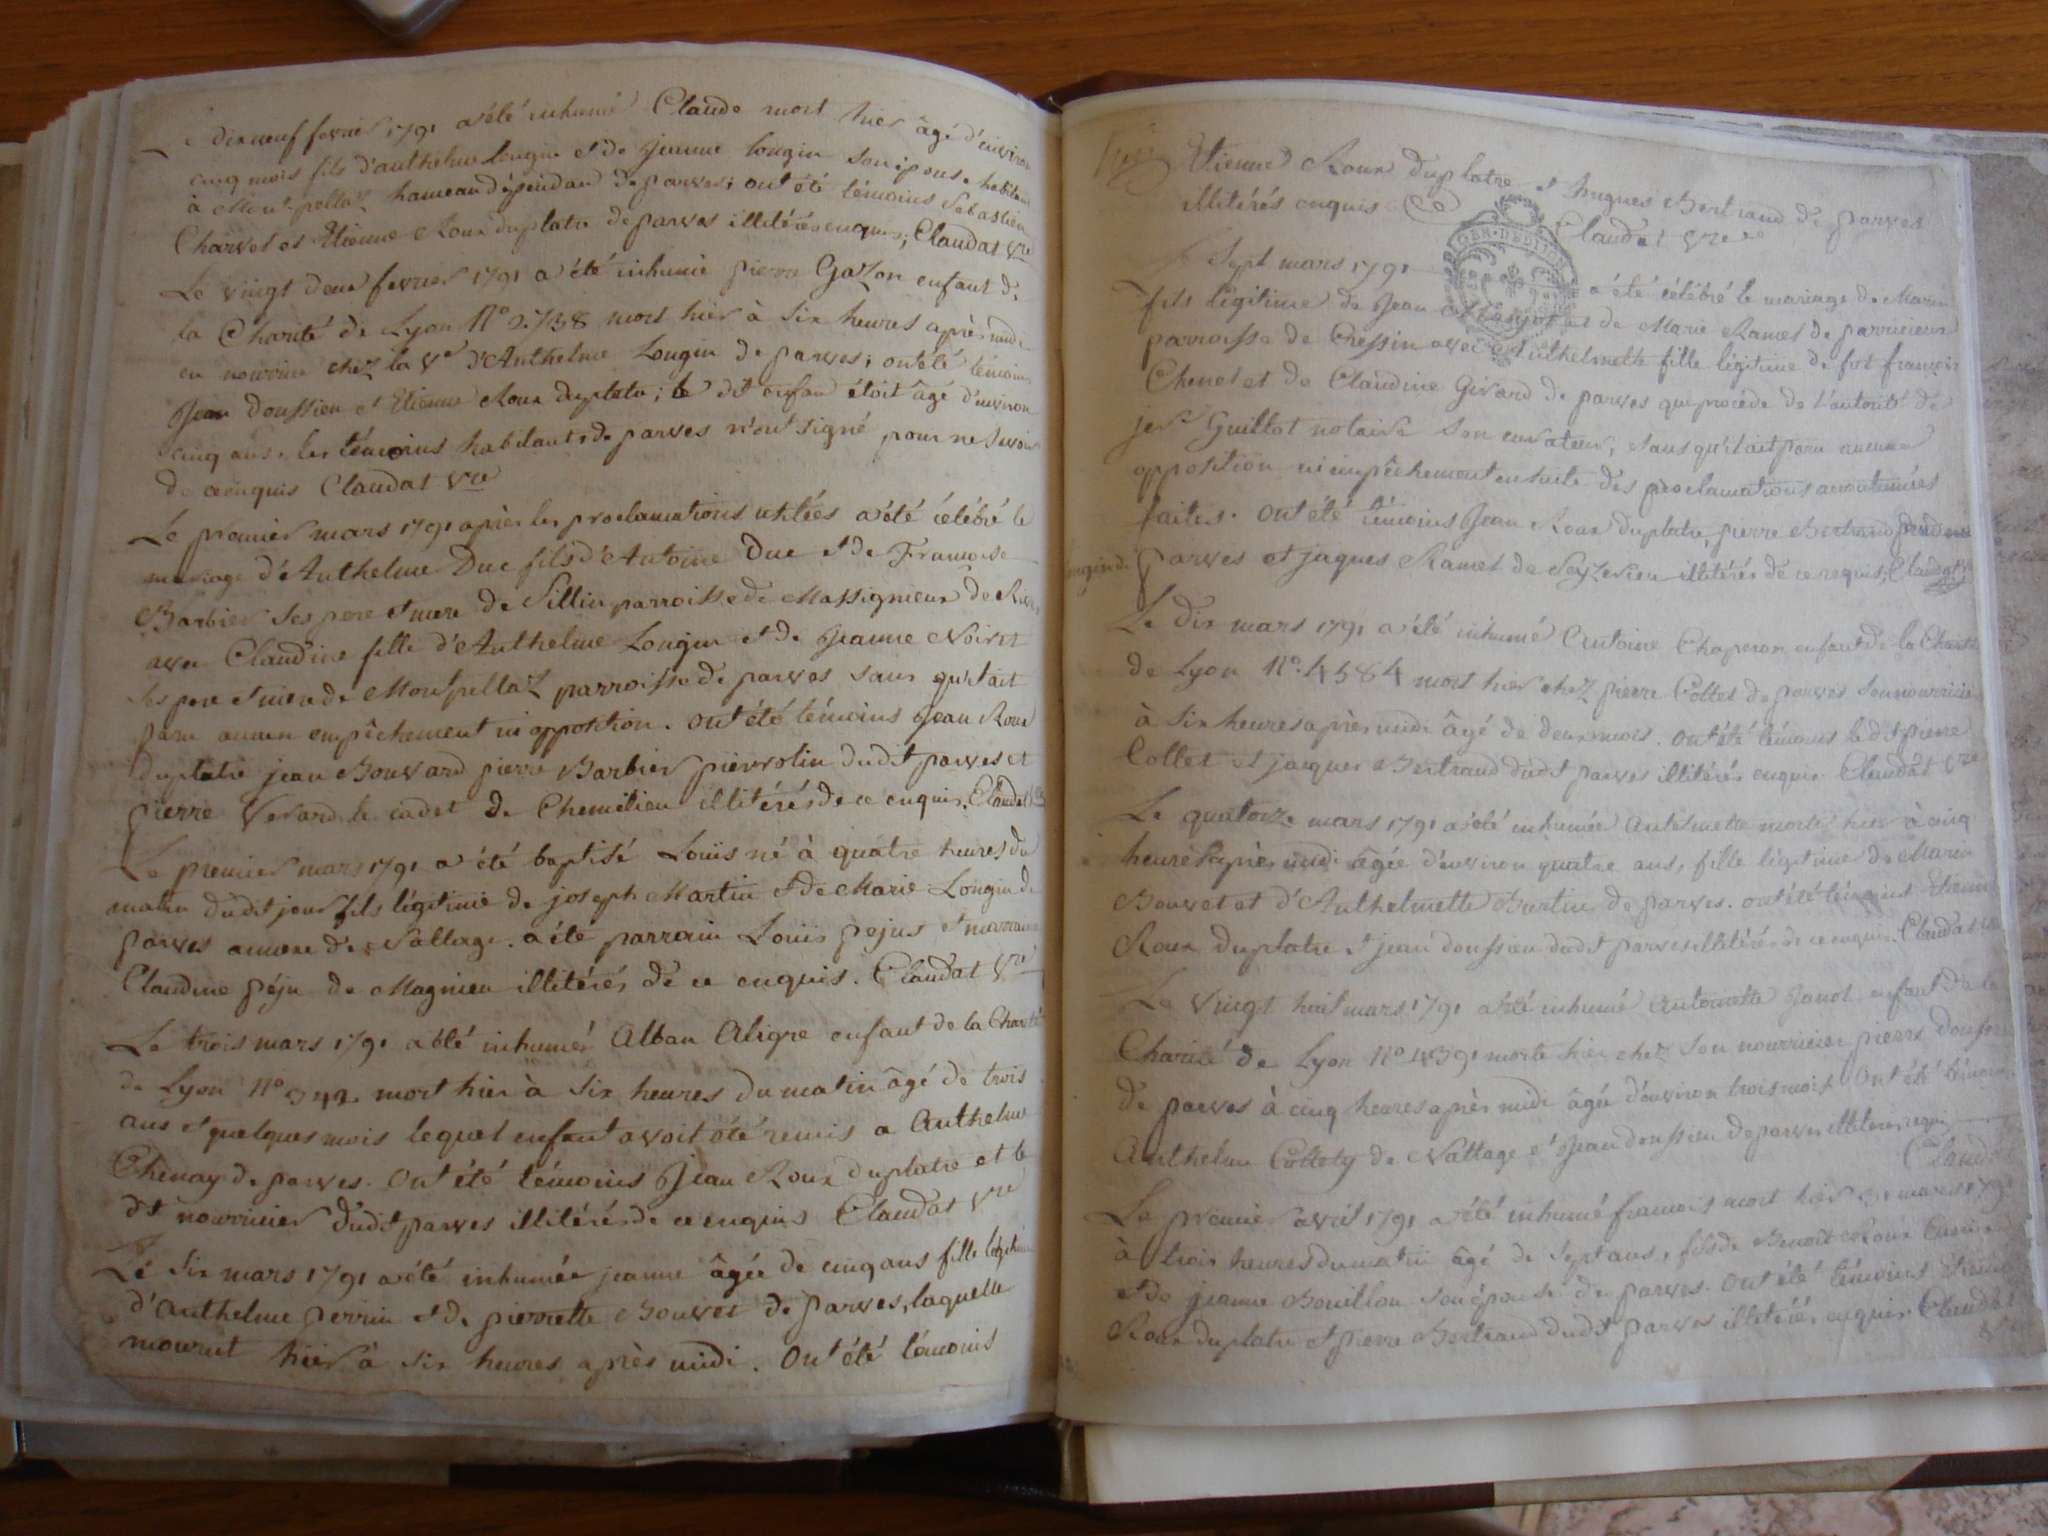 Le dix neuf fevrier 1791 a été inhumé Claude mort hier âgé d'environ
cinq mois fils d'anthelme Longin et de jeanne Longin son épouse habitans
à Montpellaz hameau dépendan de parves; ont été témoins Sebastien
Charvet et Etienne Roux duplatre de parves illitérés enquis; Claudat Vre
Le vingt deux fevrier 1791 a été inhumé pierre Gazon enfant de
la Charité de Lyon N° 2738 mort hier à six heures après midi
en nourrice chez la Ve d'Anthelme Longin de parves; ont été témoins
Jean Doussieu et Etienne Roux duplatre; le dit enfan étoit âgé d'environ
cinq ans, les témoins habitants de parves n'ont signé pour ne savoir
de ce enquis Claudat Vre
Le premier mars 1791 après les proclamations usitées a été célébré le
mariage d'Anthelme Duc fils d'Antoine Duc et de Francoise
Barbier ses pere et mere de Sillin parroisse de Massignieux de Rives
avec Claudine fille d'Anthelme Longin et de Jeanne Noiret
ses pere et mere de Montpellaz parroisse de parves sans qu'il ait
paru aucun empêchement ni opposition. ont été témoins Jean Roux
duplatre jean Bouvard pierre Barbier pierrotin dudit parves et
pierre Verard le cadet de Chemilieu illitérés de ce enquis. Claudat
Le premier mars 1791 a été baptisé Louis né à quatre heures du
matin dudit jour fils légitime de joseph Martin et de Marie Longin de
parves annexe de Nattage. a été parrain Louis pejus et marraine
Claudine péju de Magnieu illitérés de ce enquis. Claudat Vre
Le trois mars 1791 a été inhumé Alban Aligre enfant de la Charité
de Lyon N° 342 mort hier à six heures du matin âgé de trois
ans et quelques mois lequel enfant avoit été remis a Anthelme
Chenay de parves. Ont été témoins Jean Roux duplatre et le
dt nourricier dudit parves illitérés de ce enquis Claudat Vre
Le six mars 1791 a été inhumée jeanne âgée de cinq ans fille légitime
d'anthelme perrin et de pierrette Bouvet de parves, laquelle
mourut hier à six heures après midi. Ont été témoins
Etienne Roux duplatre et hugues Bertrand de parves
illitérés enquis Claudat Vre
Le Sept mars 1791 a été célébré le mariage de Marin
fils légitime de Jean et de Marie Ramel de
parroisse de Chessin avec Anthelmette fille légitime de fut francois
Chenet et de Claudine Girard de parves qui procède de l'autorité de
Guillot notaire son curateur, sans qu'il ait paru aucune
opposition ni empêchement en suite des proclamations accoutumées
faites. Ont été témoins Jean Roux duplatre, pierre Bertrand
parves et jaques Ramel de illitérés de ce requis; Claudat
Le dix mars 1791 a été inhumé Antoine Chaperon enfant de la Charité
de Lyon N° 4584 mort hier chez pierre Collet de parves son nourricier
à six heures après midi âgé de deux mois. Ont été témoins le dit pierre
Collet et jacques Bertrand dudt parves illitérés enquis Claudat Vre
Le quatorze mars 1791 a été inhumée Antelmette morte hier à cinq
heures après midi âgée d'environ quatre ans, fille légitime de Marin
Bouvet et d'Anthelmette Burtin de parves. ont été témoins Etienne
Roux duplatre et jean doussieu dudt parves illitérés de ce enquis. Claudat
Le Vingt huit mars 1791 a été inhumé Antoinette Janot enfant de la
Charité de Lyon N° 4391 morte hier chez son nourricier pierre
de parves à cinq heures après midi âgée d'environ trois mois. Ont été témoins
Anthelme de Nattage et Jean doussieu de parves illitérés
Claudat
Le premier avril 1791 a été inhumé francois mort hier 31 mars 1791
à trois heures du matin âgé de sept ans, fils de Benoit Roux
et de jeanne Bouillon son épouse de parves. Ont été témoins Etienne
Roux duplatre et pierre Bertrand dudt parves illitérés enquis Claudat
Vre